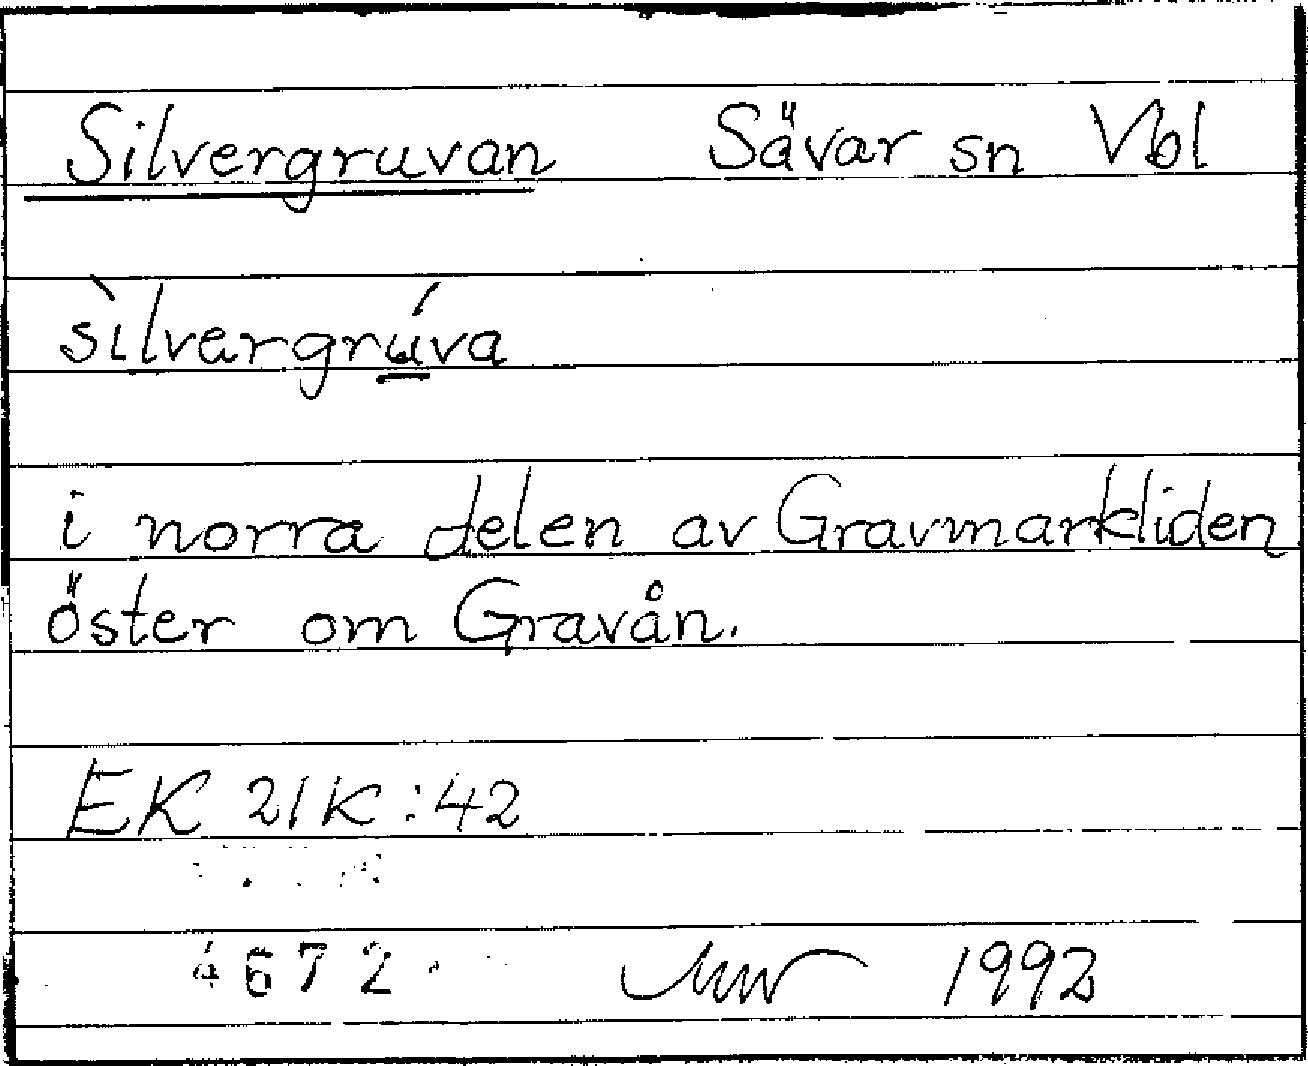 Silvergruvan Sävar sn Vbl
sìlvergrúva
i norra delen av Gravmarkliden
öster om Gravån.
EK 21K:42
4672 1992